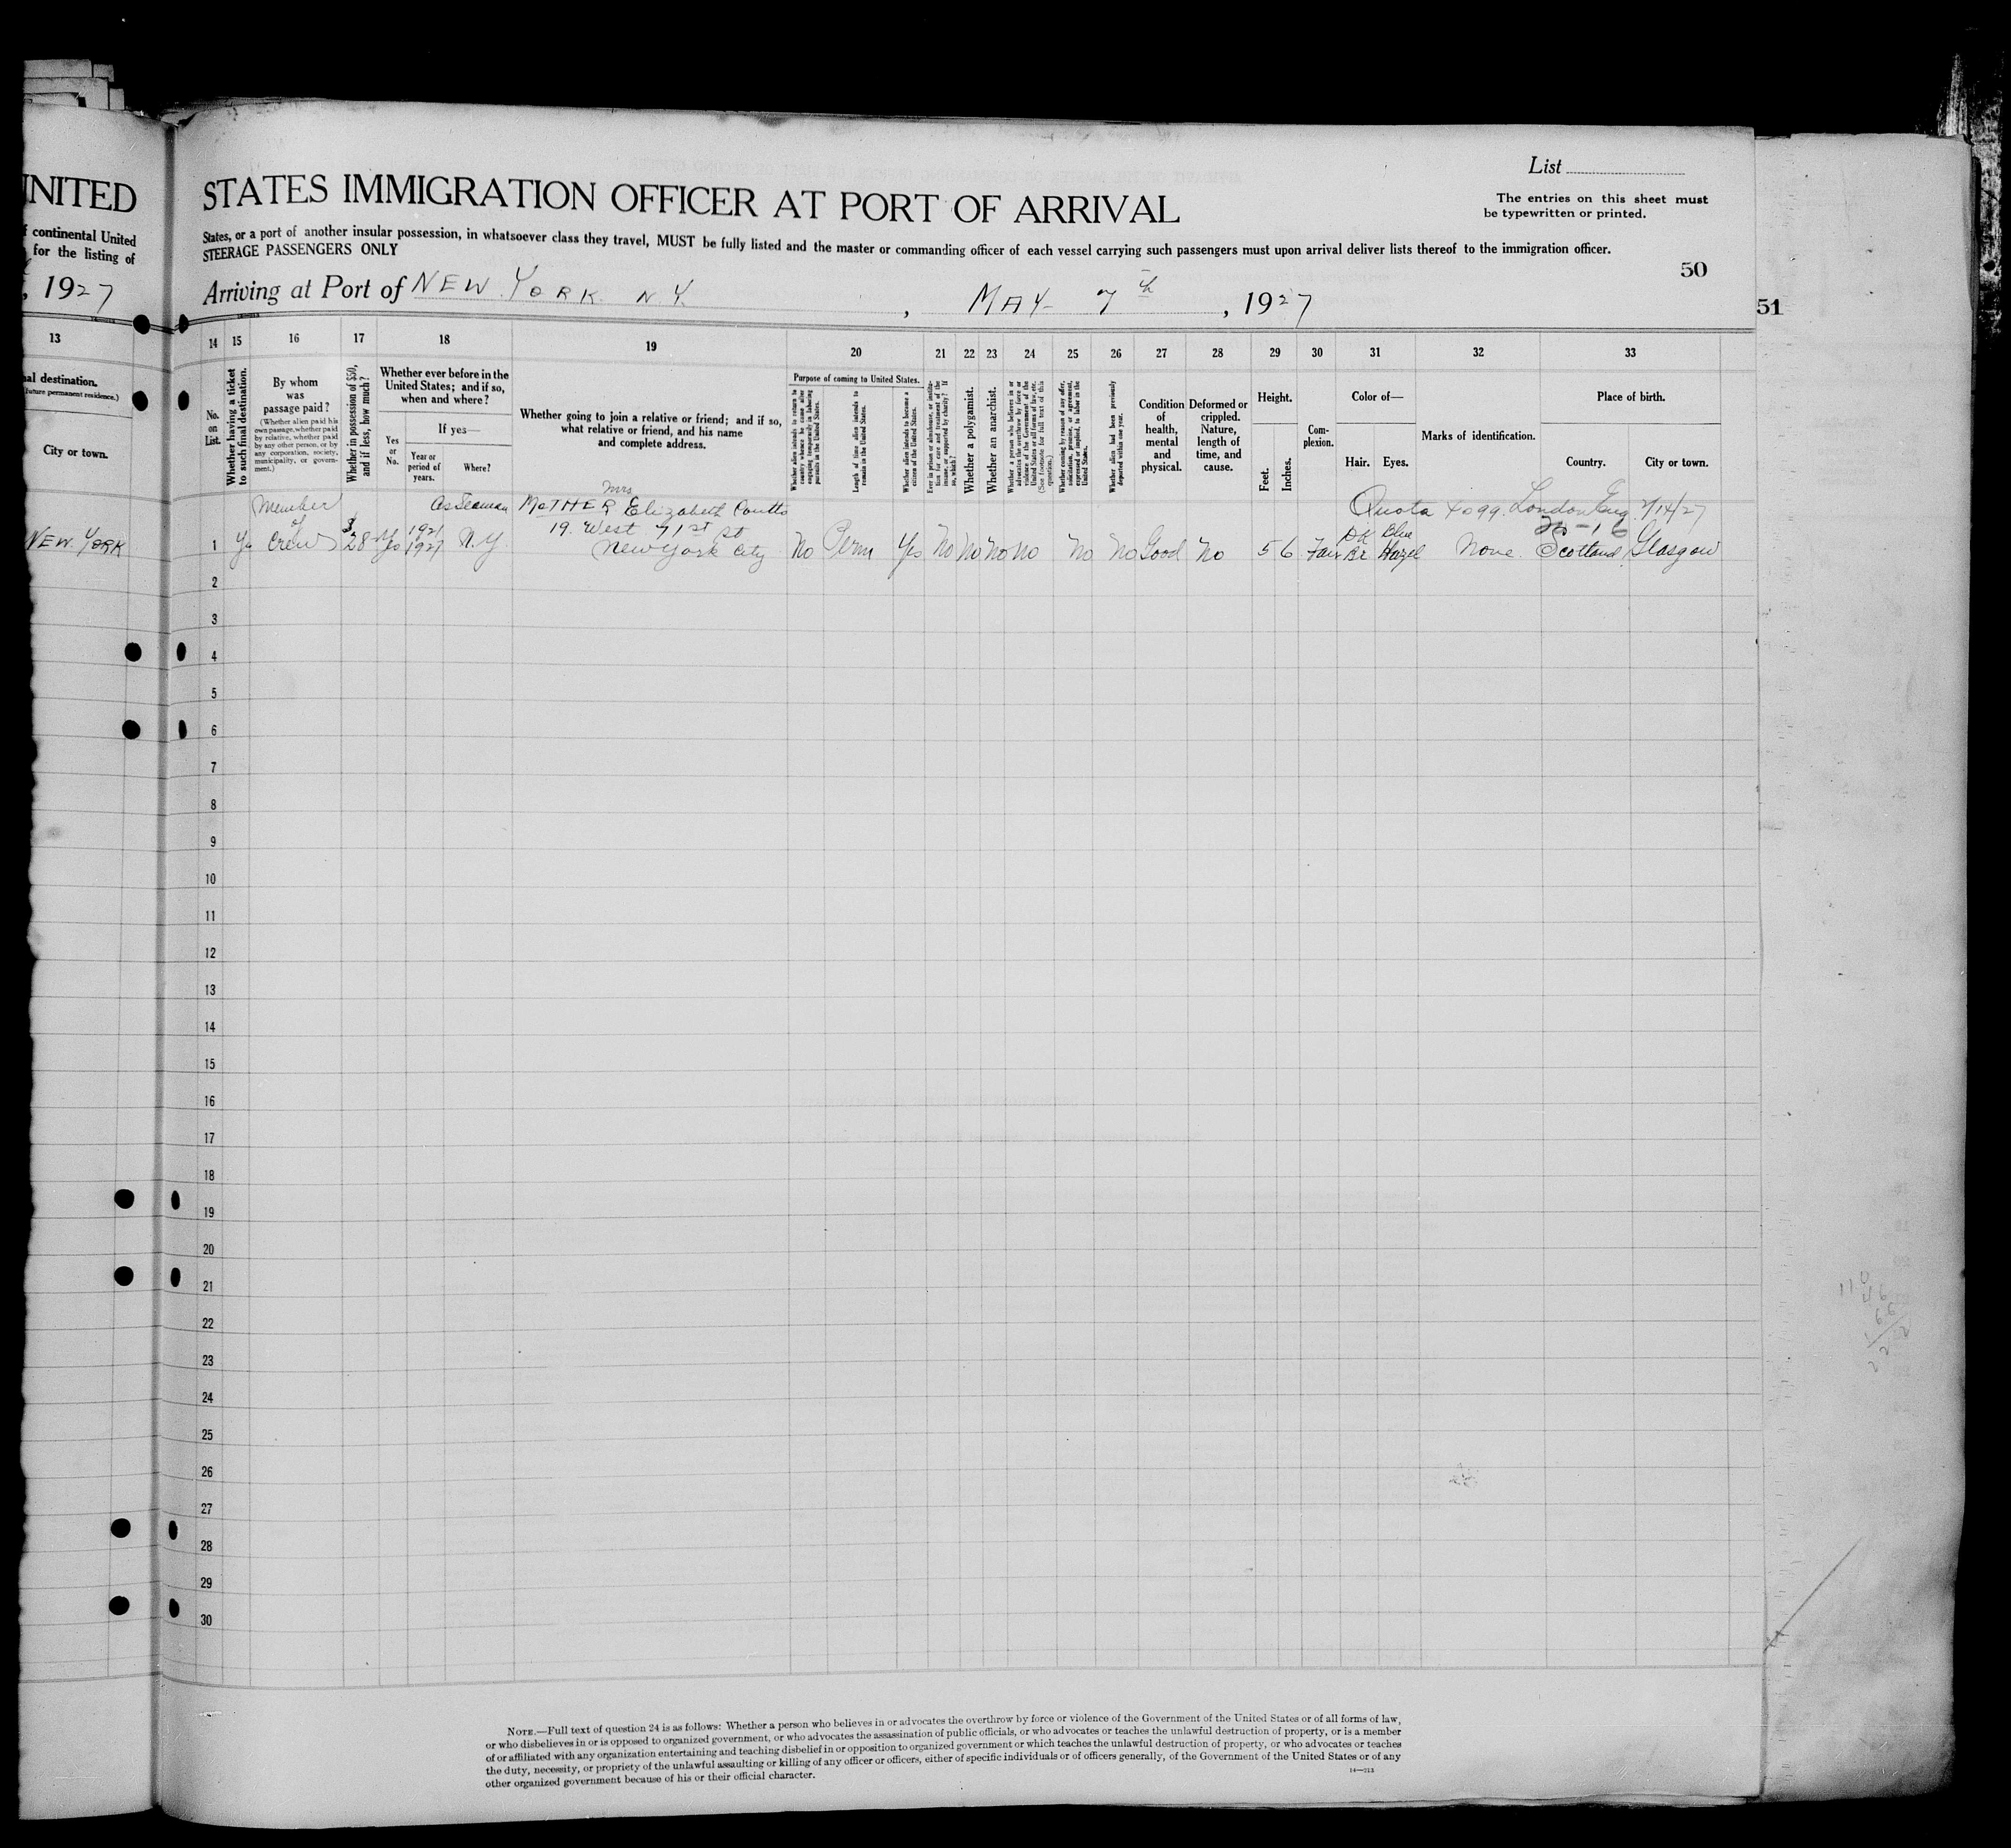 UNITED
f continental United
for the listing of
, 1927
13
al destination.
future permanent residence.)
City or town.
NEW. YORK
List
The entries on this sheet must
be typewritten or printed.
STATES IMMIGRATION OFFICER AT PORT OF ARRIVAL
States, or a port of another insular possession, in whatsoever class they travel, MUST be fully listed and the master or commanding officer of each vessel carrying such passengers must upon arrival deliver lists thereof to the immigration officer.
STEERAGE PASSENGERS ONLY
50
51
Arriving at Port of NEW YORK N.Y. , MAY 7th , 1927
14 15 16 17 18 19 20 21 22 23 24 25 26 27 28 29 30 31 32 33
No. on List.
Whether having a ticket to such final destination.
By whom was passage paid?
(Whether alien paid his own passage, whether paid by relative, whether paid by any other person, or by any corporation, society, municipality, or government.)
Whether in possession of $50, and if less, how much?
Whether ever before in the United States; and if so, when and where?
Yes or No.
If yes—
Year or period of years.
Where?
Whether going to join a relative or friend; and if so, what relative or friend, and his name and complete address.
Purpose of coming to United States.
Whether alien intends to return to country whence he came after engaging temporarily in laboring pursuits in the United States.
Length of time alien intends to remain in the United States.
Whether alien intends to become a citizen of the United States.
Ever in prison or almshouse, or institution for care and treatment of the insane, or supported by charity? If so, which?
Whether a polygamist.
Whether an anarchist.
Whether a person who believes in or advocates the overthrow by force or violence of the Government of the United States or all forms of law, etc. (See footnote for full text of this question.)
Whether coming by reason of any offer, solicitation, promise, or agreement, expressed or implied, to labor in the United States.
Whether alien had been previously deported within one year.
Condition of health, mental and physical.
Deformed or crippled. Nature, length of time, and cause.
Height.
Feet.
Inches.
Complexion.
Color of—
Hair.
Eyes.
Marks of identification.
Place of birth.
Country.
City or town.
Member of Crew
As Seaman
Mrs
MOTHER Elizabeth Coutts
19. West 71st St
New York City
Quota 4099. London Eng.
DK Blue
1 Yes $28 Yes 1921 1927 N.Y. No Perm Yes No No No No No No Good No 5 6 Fair Br Hazel None. Scotland Glasgow
2
3
4
5
6
7
8
9
10
11
12
13
14
15
16
17
18
19
20
21
22
23
24
25
26
27
28
29
30
NOTE.—Full text of question 24 is as follows: Whether a person who believes in or advocates the overthrow by force or violence of the Government of the United States or of all forms of law,
or who disbelieves in or is opposed to organized government, or who advocates the assassination of public officials, or who advocates or teaches the unlawful destruction of property, or is a member
of or affiliated with any organization entertaining and teaching disbelief in or opposition to organized government or which teaches the unlawful destruction of property, or who advocates or teaches
the duty, necessity, or propriety of the unlawful assaulting or killing of any officer or officers, either of specific individuals or of officers generally, of the Government of the United States or of any
other organized government because of his or their official character.
14—313